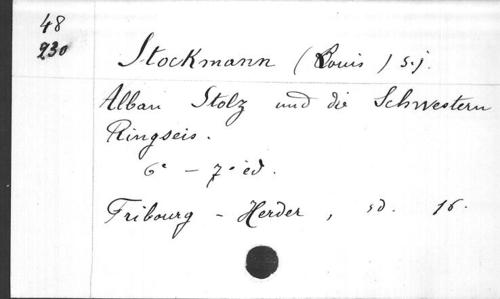 48
230
Stockmann (Louis) s.j.
Alban Stolz und die Schwestern
Ringseis.
6e - 7e ed.
Fribourg - Herder, sd. 16.